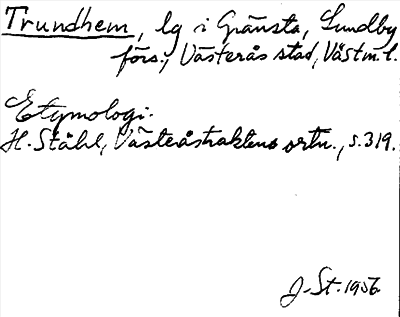 Trundhem, lg i Gränsta, Lundby
förs., Västerås stad, Västm. l.
Etymologi:
H. Ståhl, Västeåstraktens ortn., s. 319.
J. St. 1956